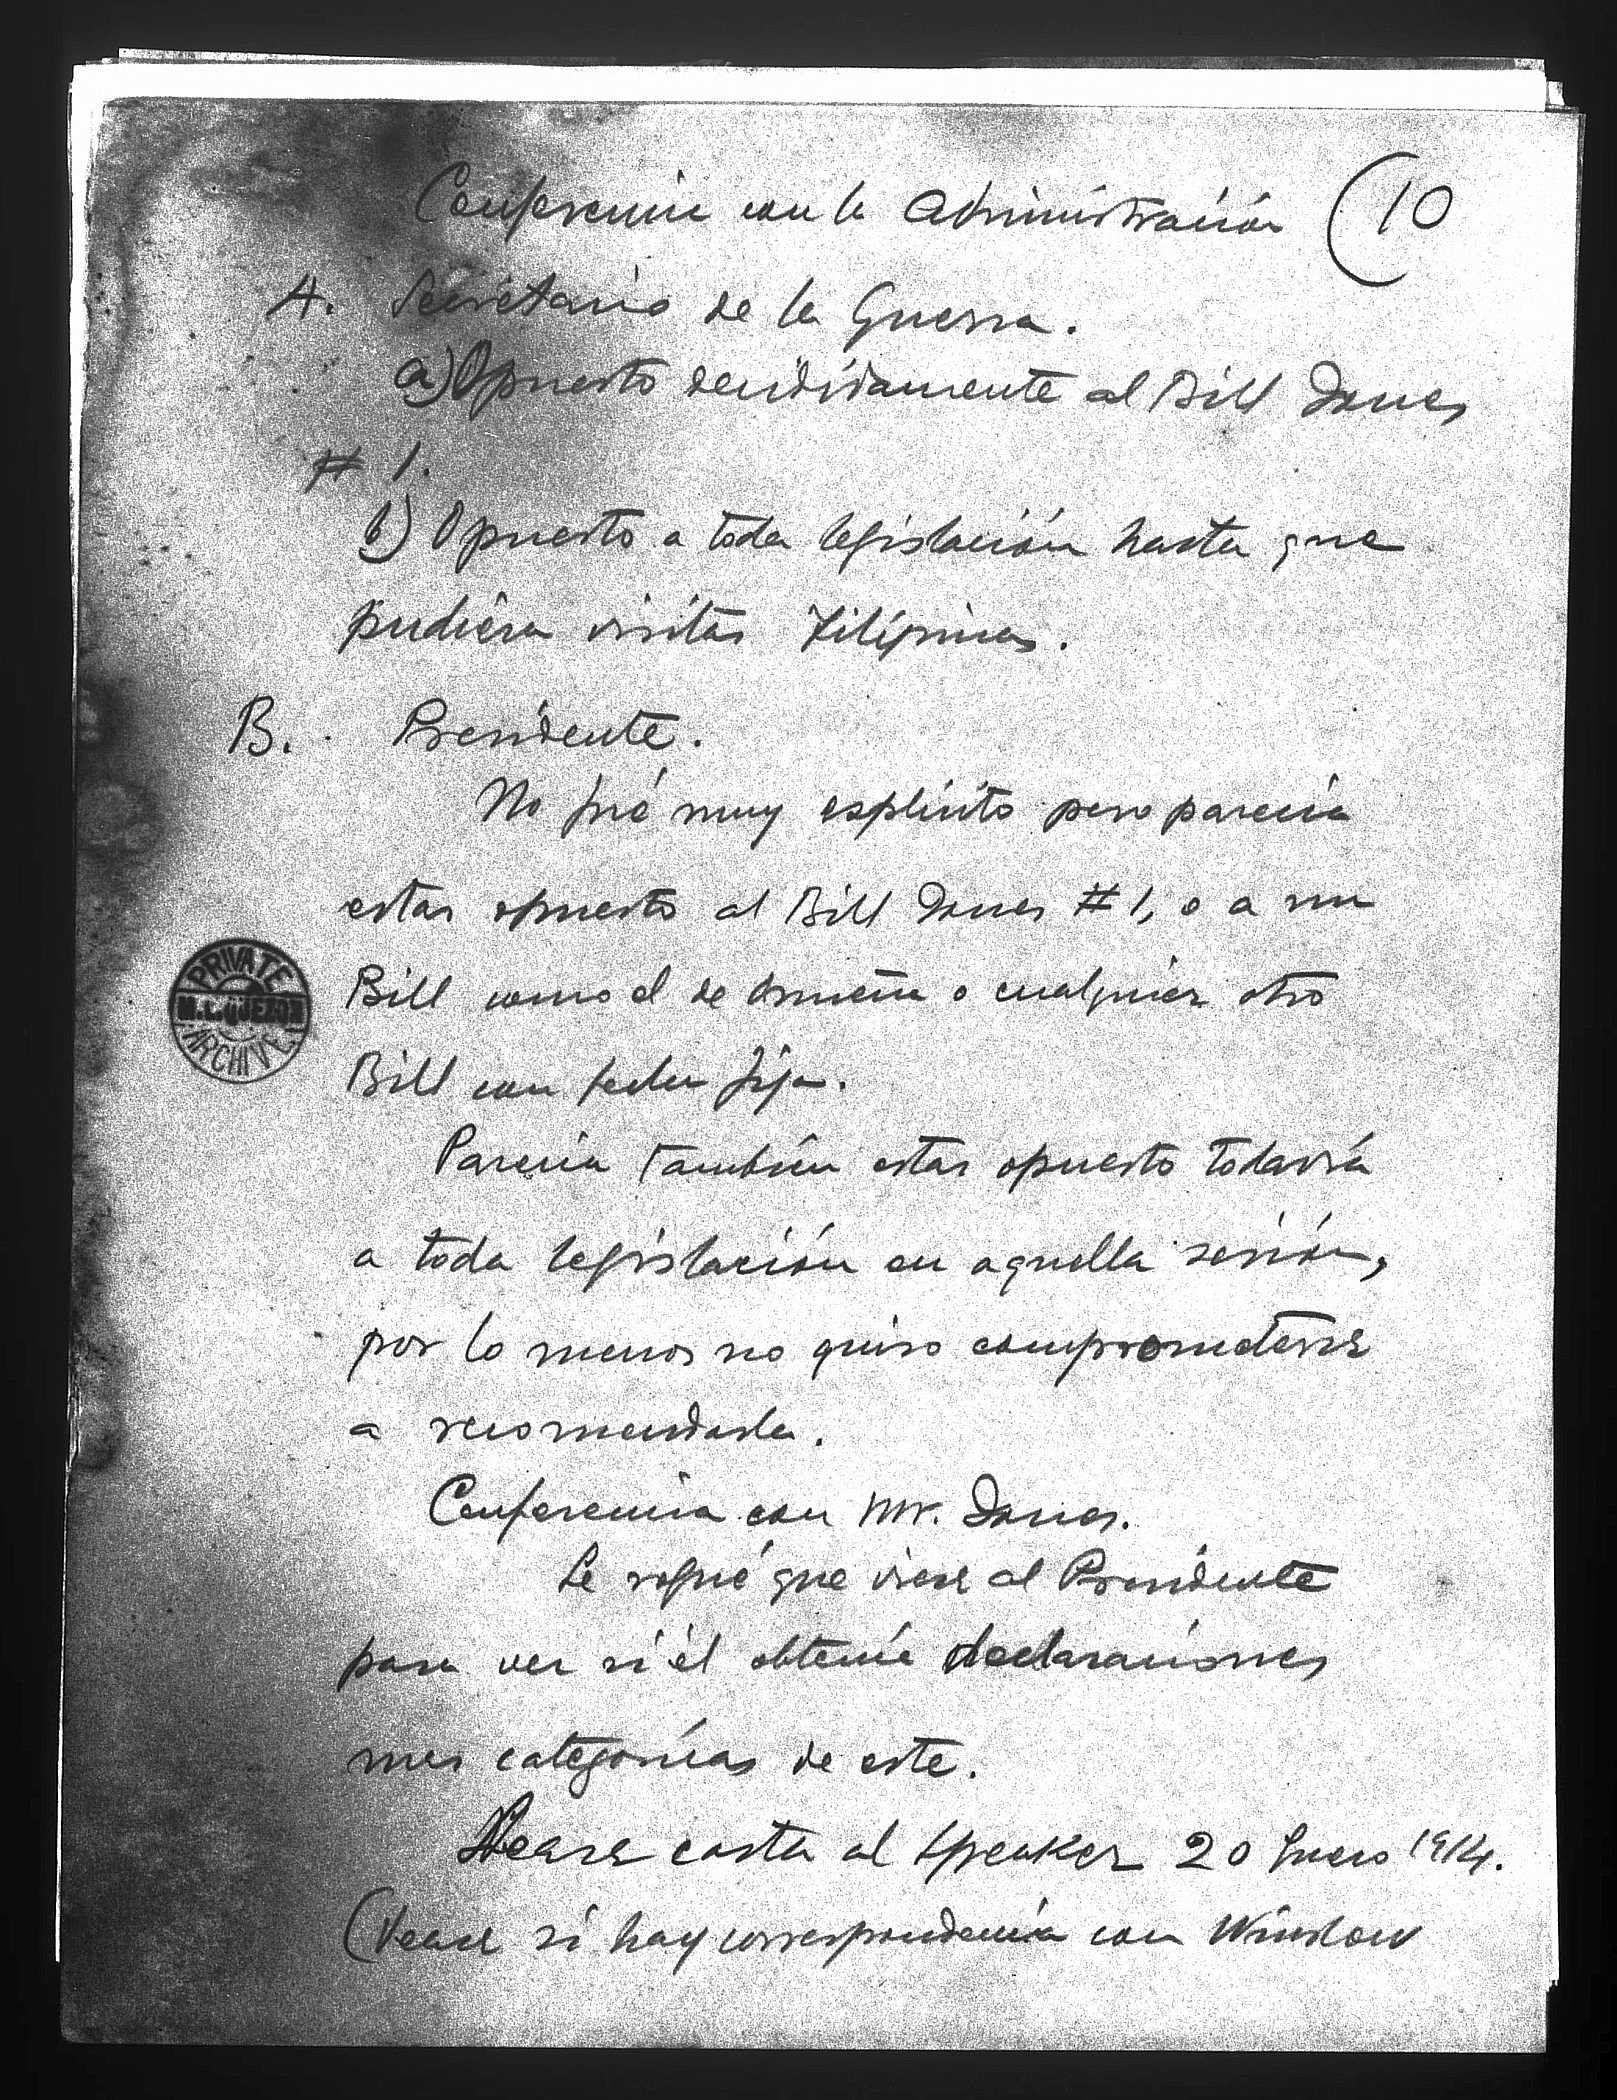 Conferencia con la Administración (10
A. Secretario de la Guerra.
a) Opuesto decididamente al Bill Jones
# 1.
b) Opuesto a toda legislación hasta que
pudiera visitar Filipinas.
B. Presidente.
No fué muy esplicito pero parecia
estar opuesto al Bill Jones # 1, o a un
Bill como el de o cualquier otro
Bill con fecha fija.
Parecia también estar opuesto todavía
a toda legislación en aquella sesión,
por lo menos no quiso comprometerse
a recomendarla.
Conferencia con Mr. Jones.
Le rogué que viese al Presidente
para ver si él obtenía declaraciones
mas categorías de este.
Vease carta al Speaker 20 Enero 1914.
(Vease si hay correspondencia con Winslow
PRIVATE
M. L. QUEZON
ARCHIVE